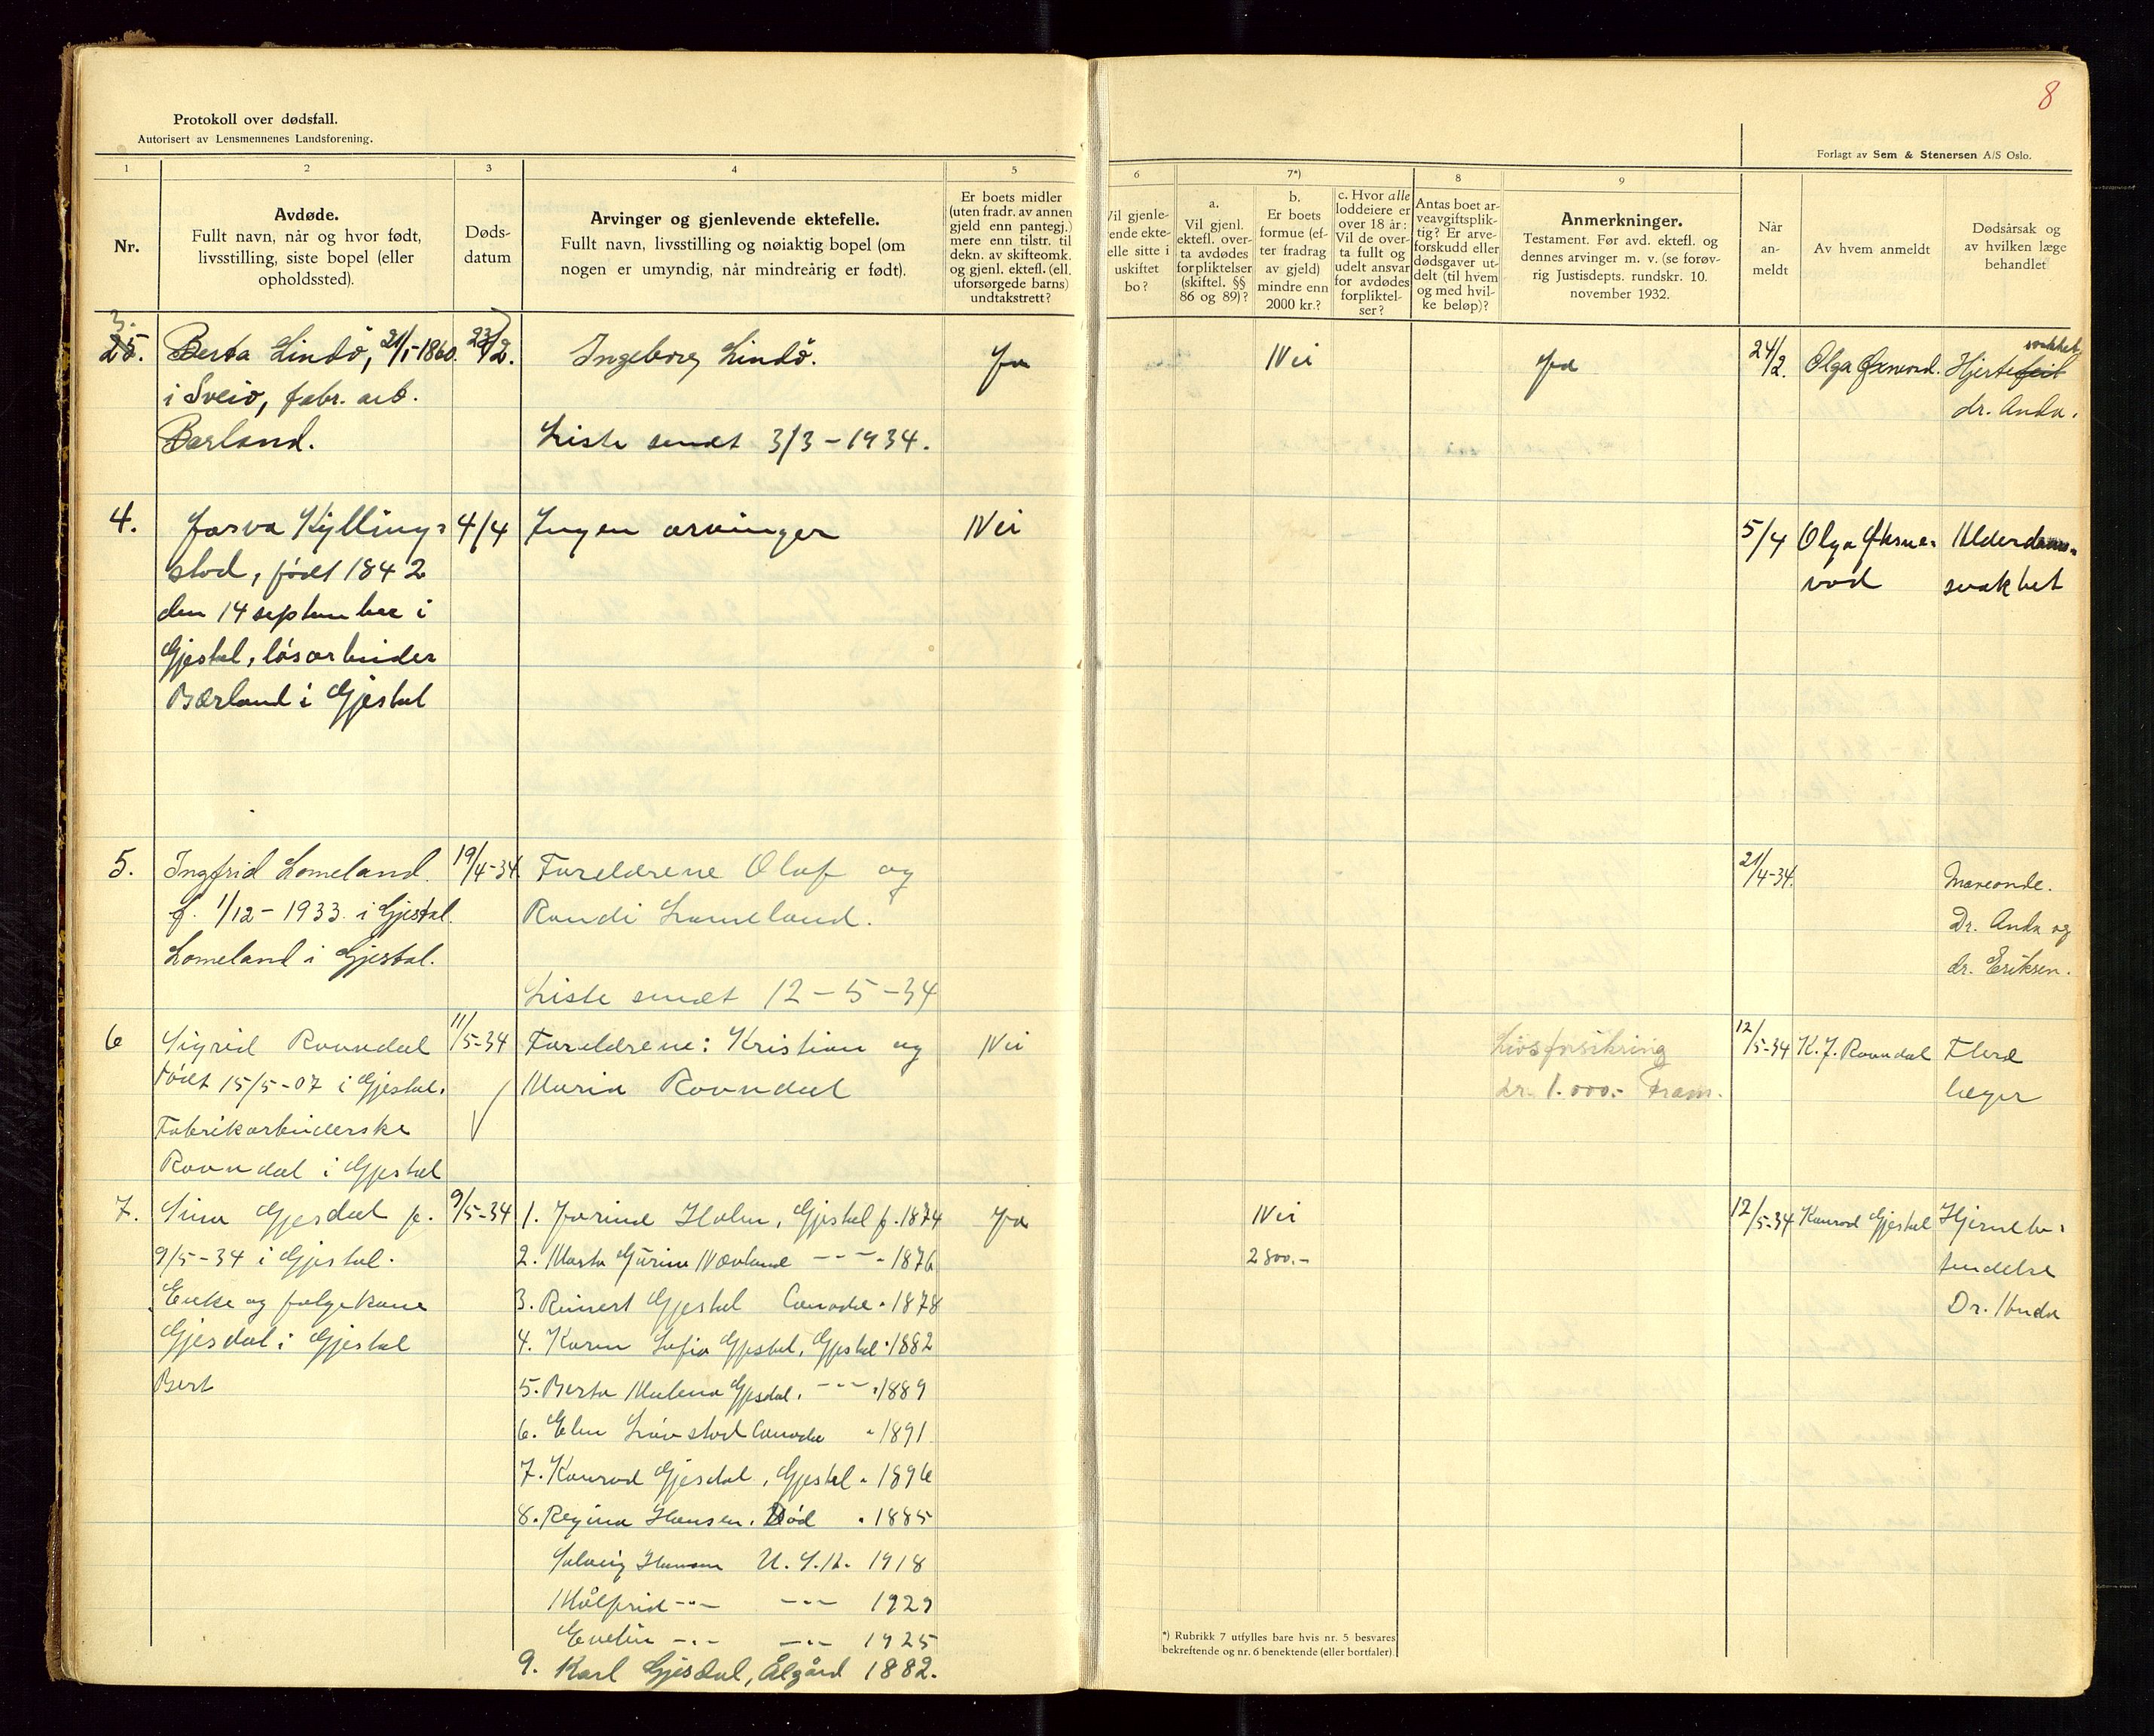 8
Protokoll over dødsfall.
Autorisert av Lensmennenes Landsforening.
Forlagt av Sem & Stenersen A/S Oslo.
1
2
3
4
5
6
7*)
8
9
Nr.
Avdøde.
Fullt navn, når og hvor født,
livsstilling, siste bopel (eller
opholdssted).
Døds-
datum
Arvinger og gjenlevende ektefelle.
Fullt navn, livsstilling og nøiaktig bopel (om
nogen er umyndig, når mindreårig er født).
Er boets midler
(uten fradr. av annen
gjeld enn pantegj.)
mere enn tilstr. til
dekn. av skifteomk.
og gjenl. ektef. (ell.
uforsørgede barns)
undtakstrett?
Vil gjenle-
ende ekte-
elle sitte i
uskiftet
bo?
a.
Vil gjenl.
ektefl. over-
ta avdødes
forpliktelser
(skiftel. §§
86 og 89)?
b.
Er boets
formue (ef-
ter fradrag
av gjeld)
mindre enn
2000 kr.?
c. Hvor alle
loddeiere er
over 18 år:
Vil de over-
ta fullt og
udelt ansvar
for avdødes
forpliktel-
ser?
Antas boet ar-
veavgiftsplik-
tig? Er arve-
forskudd eller
dødsgaver ut-
delt (til hvem
og med hvil-
ke beløp)?
Anmerkninger.
Testament. Før avd. ektefl. og
dennes arvinger m. v. (se forøv-
rig Justisdepts. rundskr. 10.
november 1932.
Når
an-
meldt
Av hvem anmeldt
Dødsårsak og
av hvilken læge
behandlet
3.
Berta Lindö, 21/1-1860. 23/2.
i Sveio, fabr. arb.
Bærland.
Ingeborg Lindö.
Liste sendt 3/3-1934.
Ja
Nei
Ja
24/2.
Olga
Hjertefeil
svakhet
dr. Anda.
4.
Kyllings-
stad, født 1842
den 14 september i
Gjestal, løsarbeider
Bærland i Gjestal
4/4
Ingen arvinger
Nei
5/4
Olga
vad
Alderdoms-
svakhet
5.
Ingfrid Lomeland.
f. 1/12-1933. i Gjestal.
Lomeland i Gjestal.
19/4-34
Foreldrene Olaf og
Randi Lomeland.
Liste sendt 12-5-34
21/4-34.
Dr. Anda og
dr. Eriksen.
6
Sigrid Ravndal
Født 15/5-07 i Gjestal.
Fabrikarbeiderske
Ravndal i Gjestal
11/5-34
Foreldrene: Kristian og
Maria Ravndal
Nei
Livsforsikring
kr. 1.000.- Fram.
12/5-34
K. J. Ravndal
Flere
læger
7.
Sina Gjesdal f.
9/5-34 i Gjestal.
Enke og folgekone
Gjesdal i Gjestal
Bert
9/5-34
1. Jorine Holm, Gjestal f. 1874
2. Marta Gurine Nævland -"- 1876
3. Reinert Gjestal Canada " 1878
4. Karen Sofia Gjestal, Gjestal " 1882
5. Berta Malena Gjesdal, -"- " 1889
6. Elen Lauvstad Canada " 1891
7. Konrad Gjesdal, Gjestal " 1896
8. Regina Hansen. Død " 1885
Solveig Hansen U.S.A. 1918
Målfrid -"- -"- 1929
Evelin -"- -"- 1925
9. Karl Gjesdal, Ålgård 1882.
Ja
Nei
2800.-
12/5-34
Konrad Gjestal
Hjernebe-
tendelse
Dr. Anda
*) Rubrikk 7 utfylles bare hvis nr. 5 besvares
bekreftende og nr. 6 benektende (eller bortfaler).